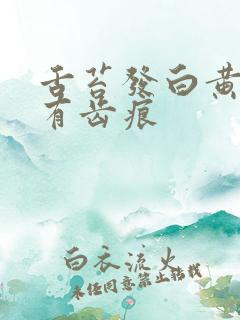 舌苔發白黄
有齿痕
白衣流火
未经同意禁止转载